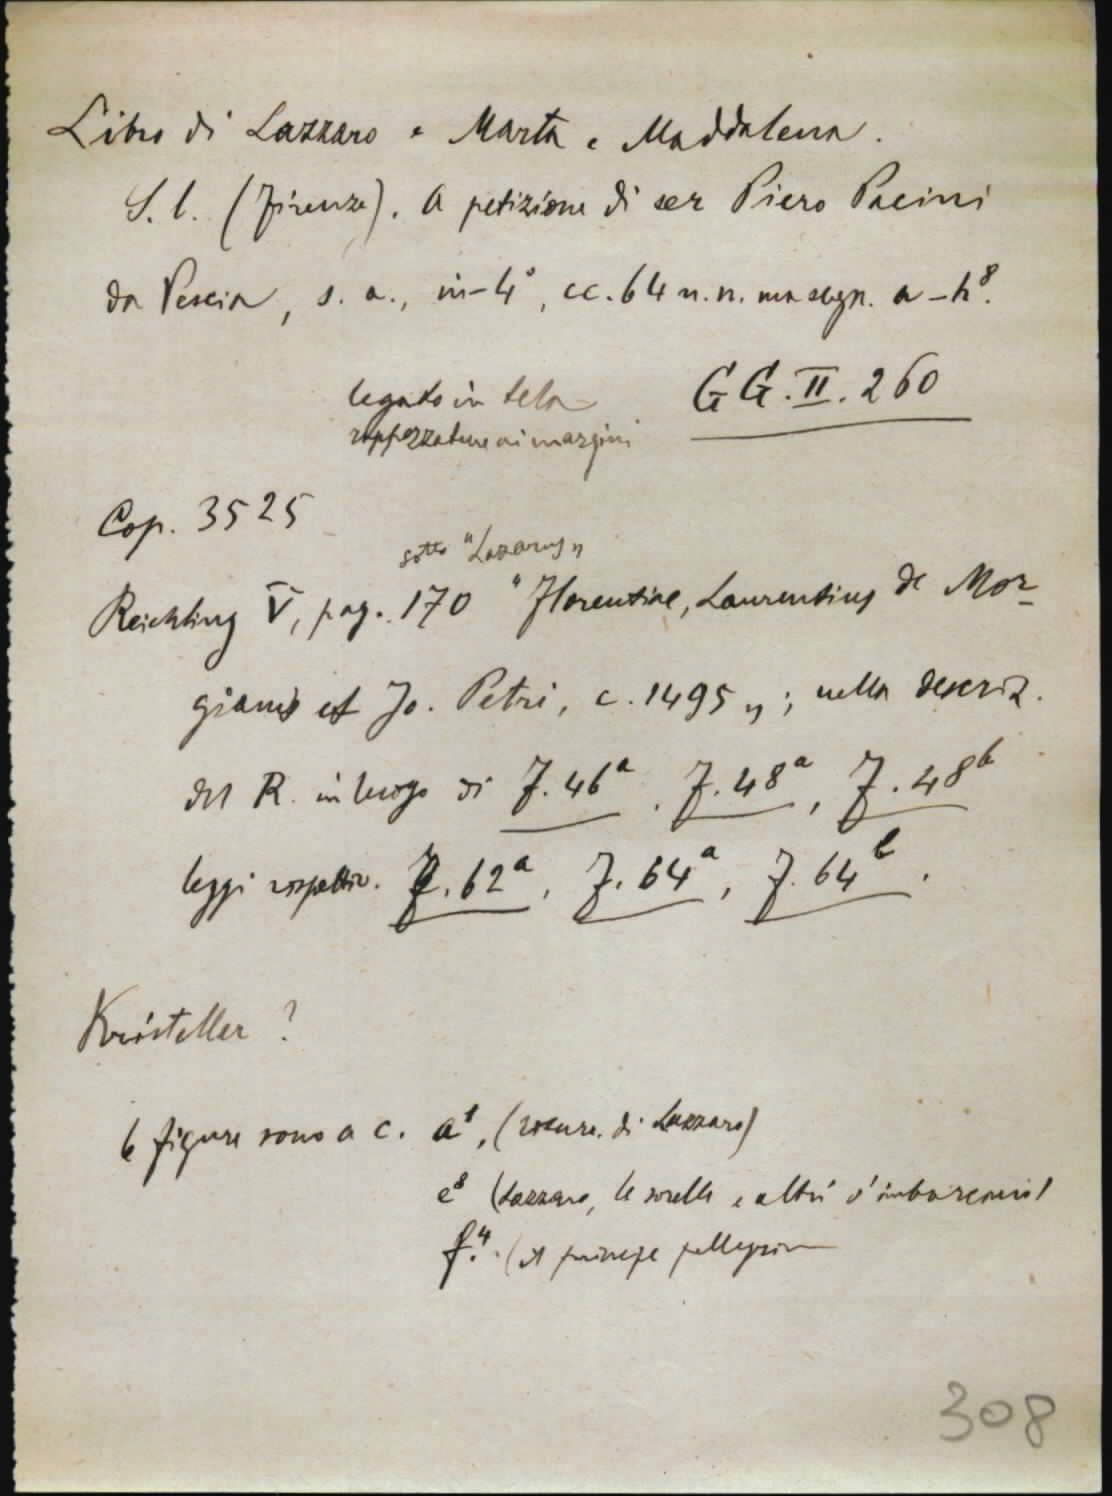 Libro di Lazzaro e Marta e Maddalena.
S. l. (Firenze). A petizione di ser Piero Pacini
da Pescia, s. a., in-4°, cc. 64 n. n. ma segn. a-h⁸.
legato in tela GG.II.260
rappezzature ai margini
Cop. 3525
sotto "Lazarus"
Reichling V, pag. 170 "Florentiae, Laurentius de Mor-
gianis et Jo. Petri, c. 1495"; nella descriz.
del R. in luogo di F. 46ᵃ, F. 48ᵃ, F. 48ᵇ
leggi rispettiv. F. 62ᵃ, F. 64ᵃ, F. 64ᵇ.
Kristeller ?
6 figure sono a c. a¹, (resurr. di Lazzaro)
e⁸ (Lazzaro, le sorelle e altri s'imbarcano)
f.⁴. (il principe pellegrino
308